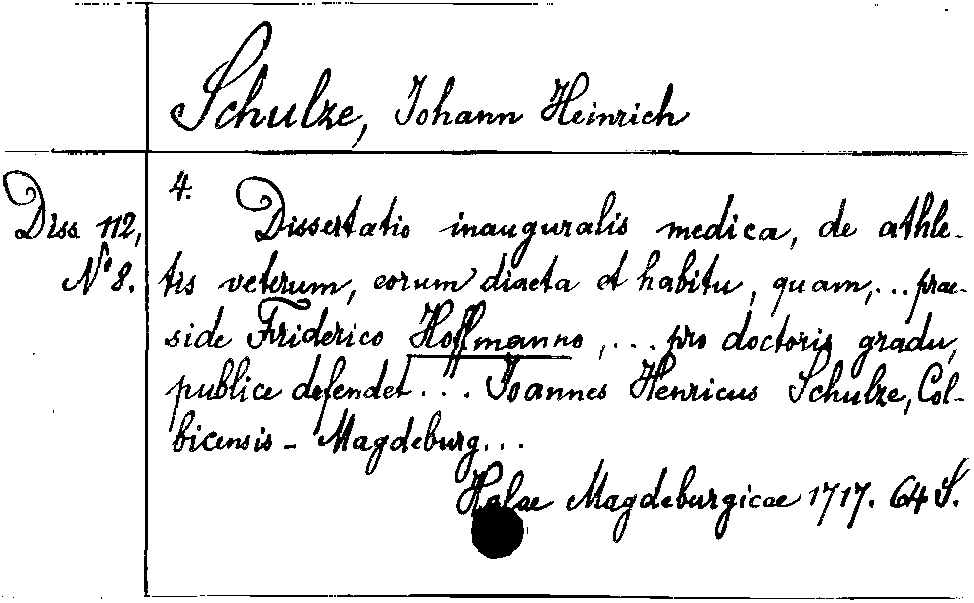 Schulze, Johann Heinrich
Diss. 112,
No 8.
4.
Dissertatio inauguralis medica, de athle-
tis veterum, eorum diaeta et habitu, quam, ... prae-
side Friderico Hoffmanno, ... pro doctoris gradu,
publice defendet ... Joannes Henricus Schulze, Col-
bicensis - Magdeburg...
Halae Magdeburgicae 1717. 64 S.